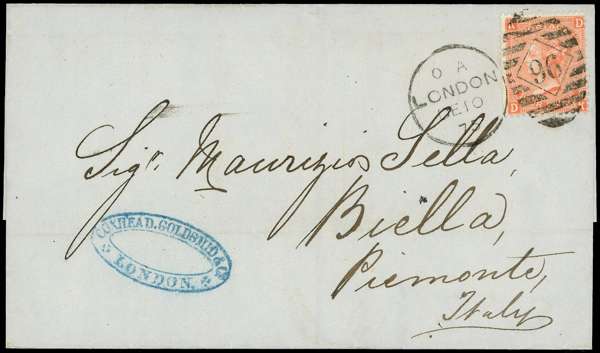 D
96
D
O A
LONDON
E10
7
Sigr. Maurizio Sella,
Biella,
Piemonte,
Italy
COXHEAD. GOLDSMID & Co
LONDON.